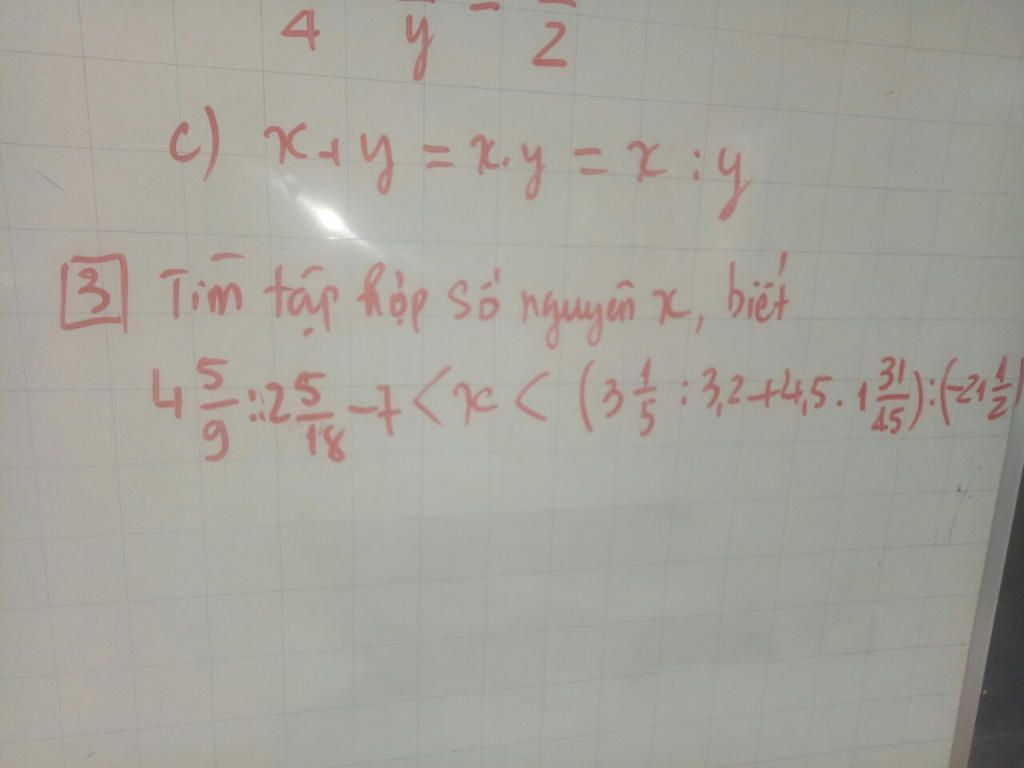 4 y = 2
c) x + y = x . y = x : y
3 Tìm tập hợp số nguyên x, biết
4 5/9 : 2 5/18 - 7 < x < (3 1/5 : 3,2 + 4,5 . 1 31/45) : (-21 1/2)